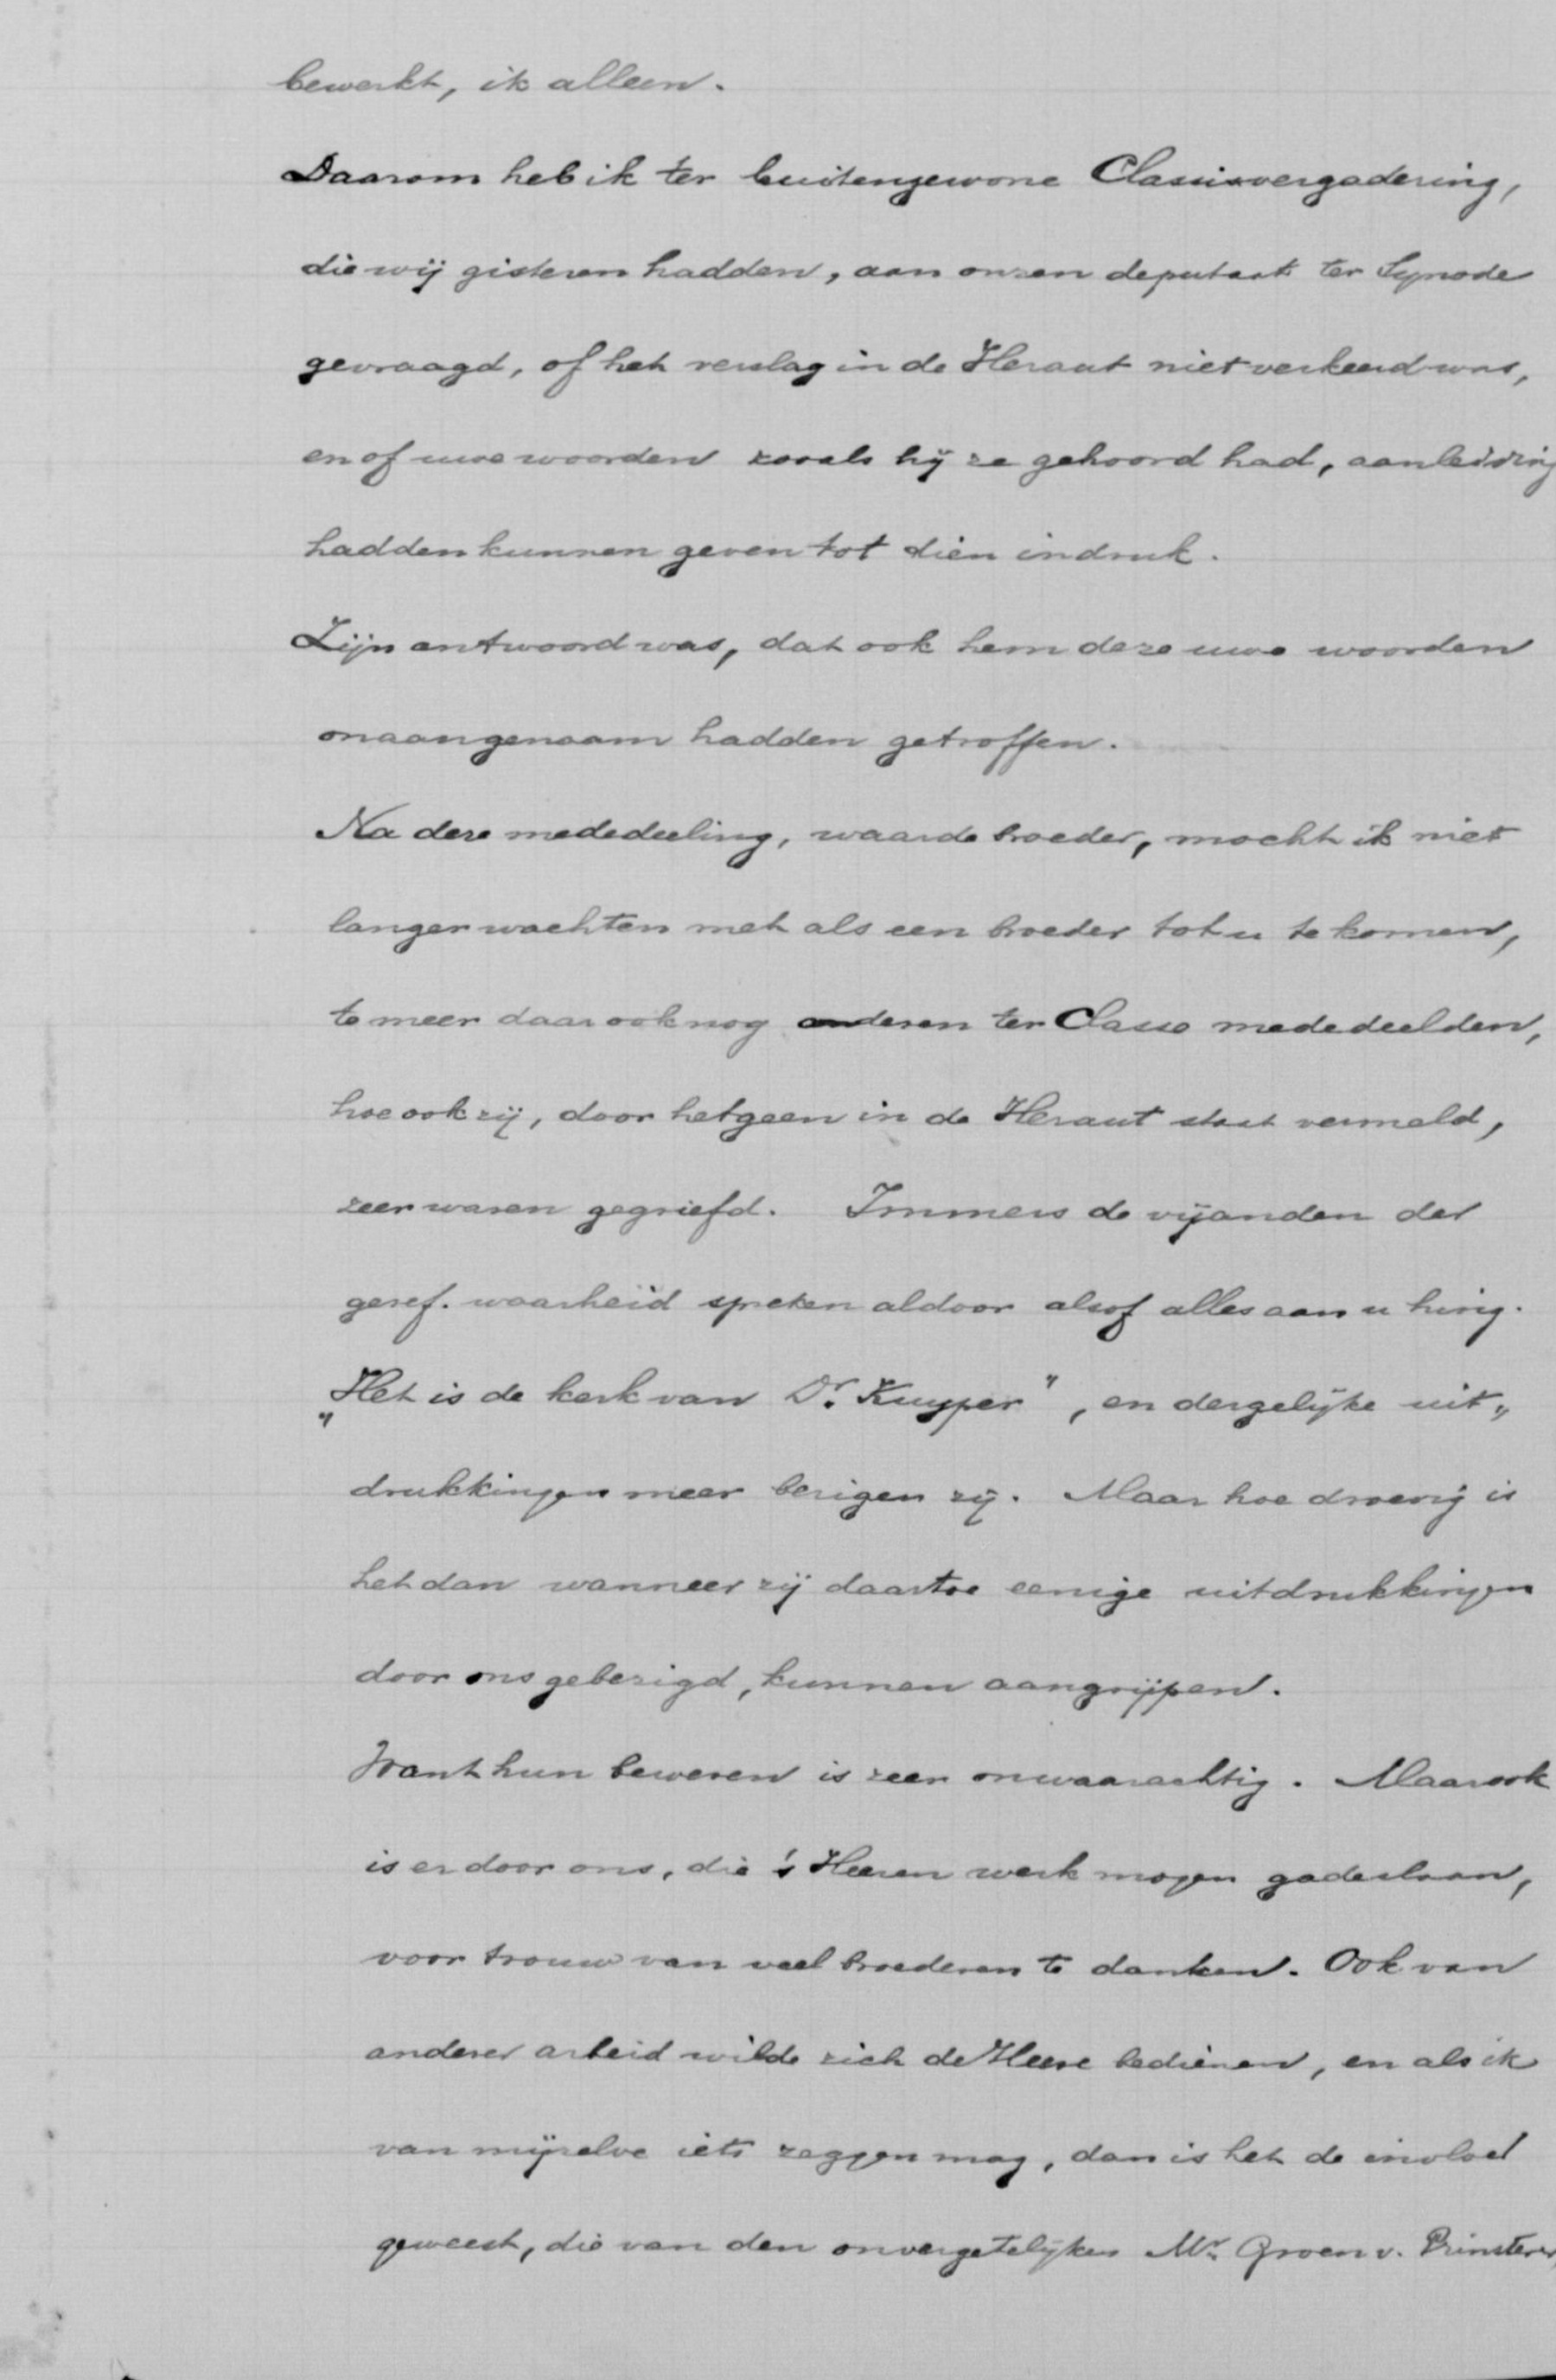 bewerkt, ik alleen.
Daarom heb ik ter buitengewone Classisvergadering,
die wij gisteren hadden, aan onzen deputaat ter Synode
gevraagd, of het verslag in de Heraut niet verkeerd was,
en of uwe woorden zooals hij ze gehoord had, aanleiding
hadden kunnen geven tot dien indruk.
Zijn antwoord was, dat ook hem deze uwe woorden
onaangenaam hadden getroffen.
Na deze mededeeling, waarde broeder, mocht ik niet
langer wachten met als een broeder tot u te komen,
te meer daar ook nog anderen ter Classe mededeelden,
hoe ook zij, door hetgeen in de Heraut staat vermeld,
zeer waren gegriefd. Immers de vijanden der
geref. waarheid spreken aldoor alsof alles aan u hing.
"Het is de kerk van Dr. Kuyper", en dergelijke uit„
drukkingen meer bezigen zij. Maar hoe droevig is
het dan wanneer zij daartoe eenige uitdrukkingen
door ons gebezigd, kunnen aangrijpen.
Want hun beweren is zeer onwaarachtig. Maar ook
is er door ons, die 's Heeren werk mogen gadeslaan,
voor trouw van veel broederen te danken. Ook van
anderer arbeid wilde zich de Heere bedienen, en als ik
van mijzelve iets zeggen mag, dan is het de invloed
geweest, die van den onvergetelijken Mr. Groen v. Prinsterer,